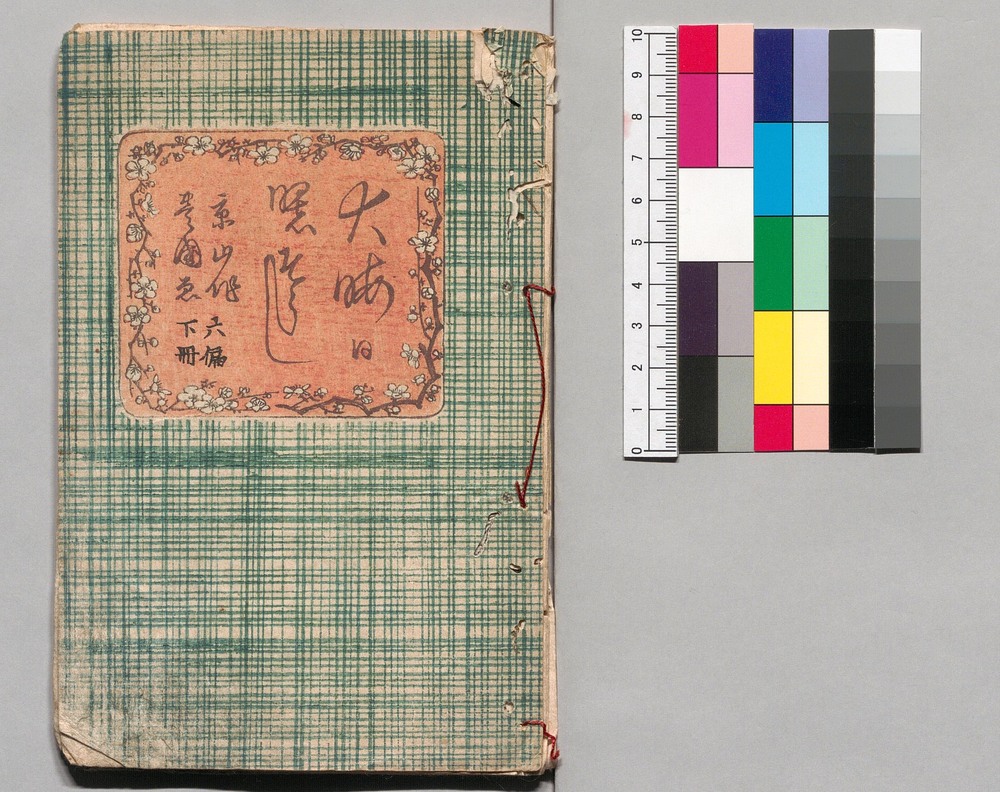 大晦日
曙草紙
京山作
豊國ゑ
六偏
下冊
10
9
8
7
6
5
4
3
2
1
0